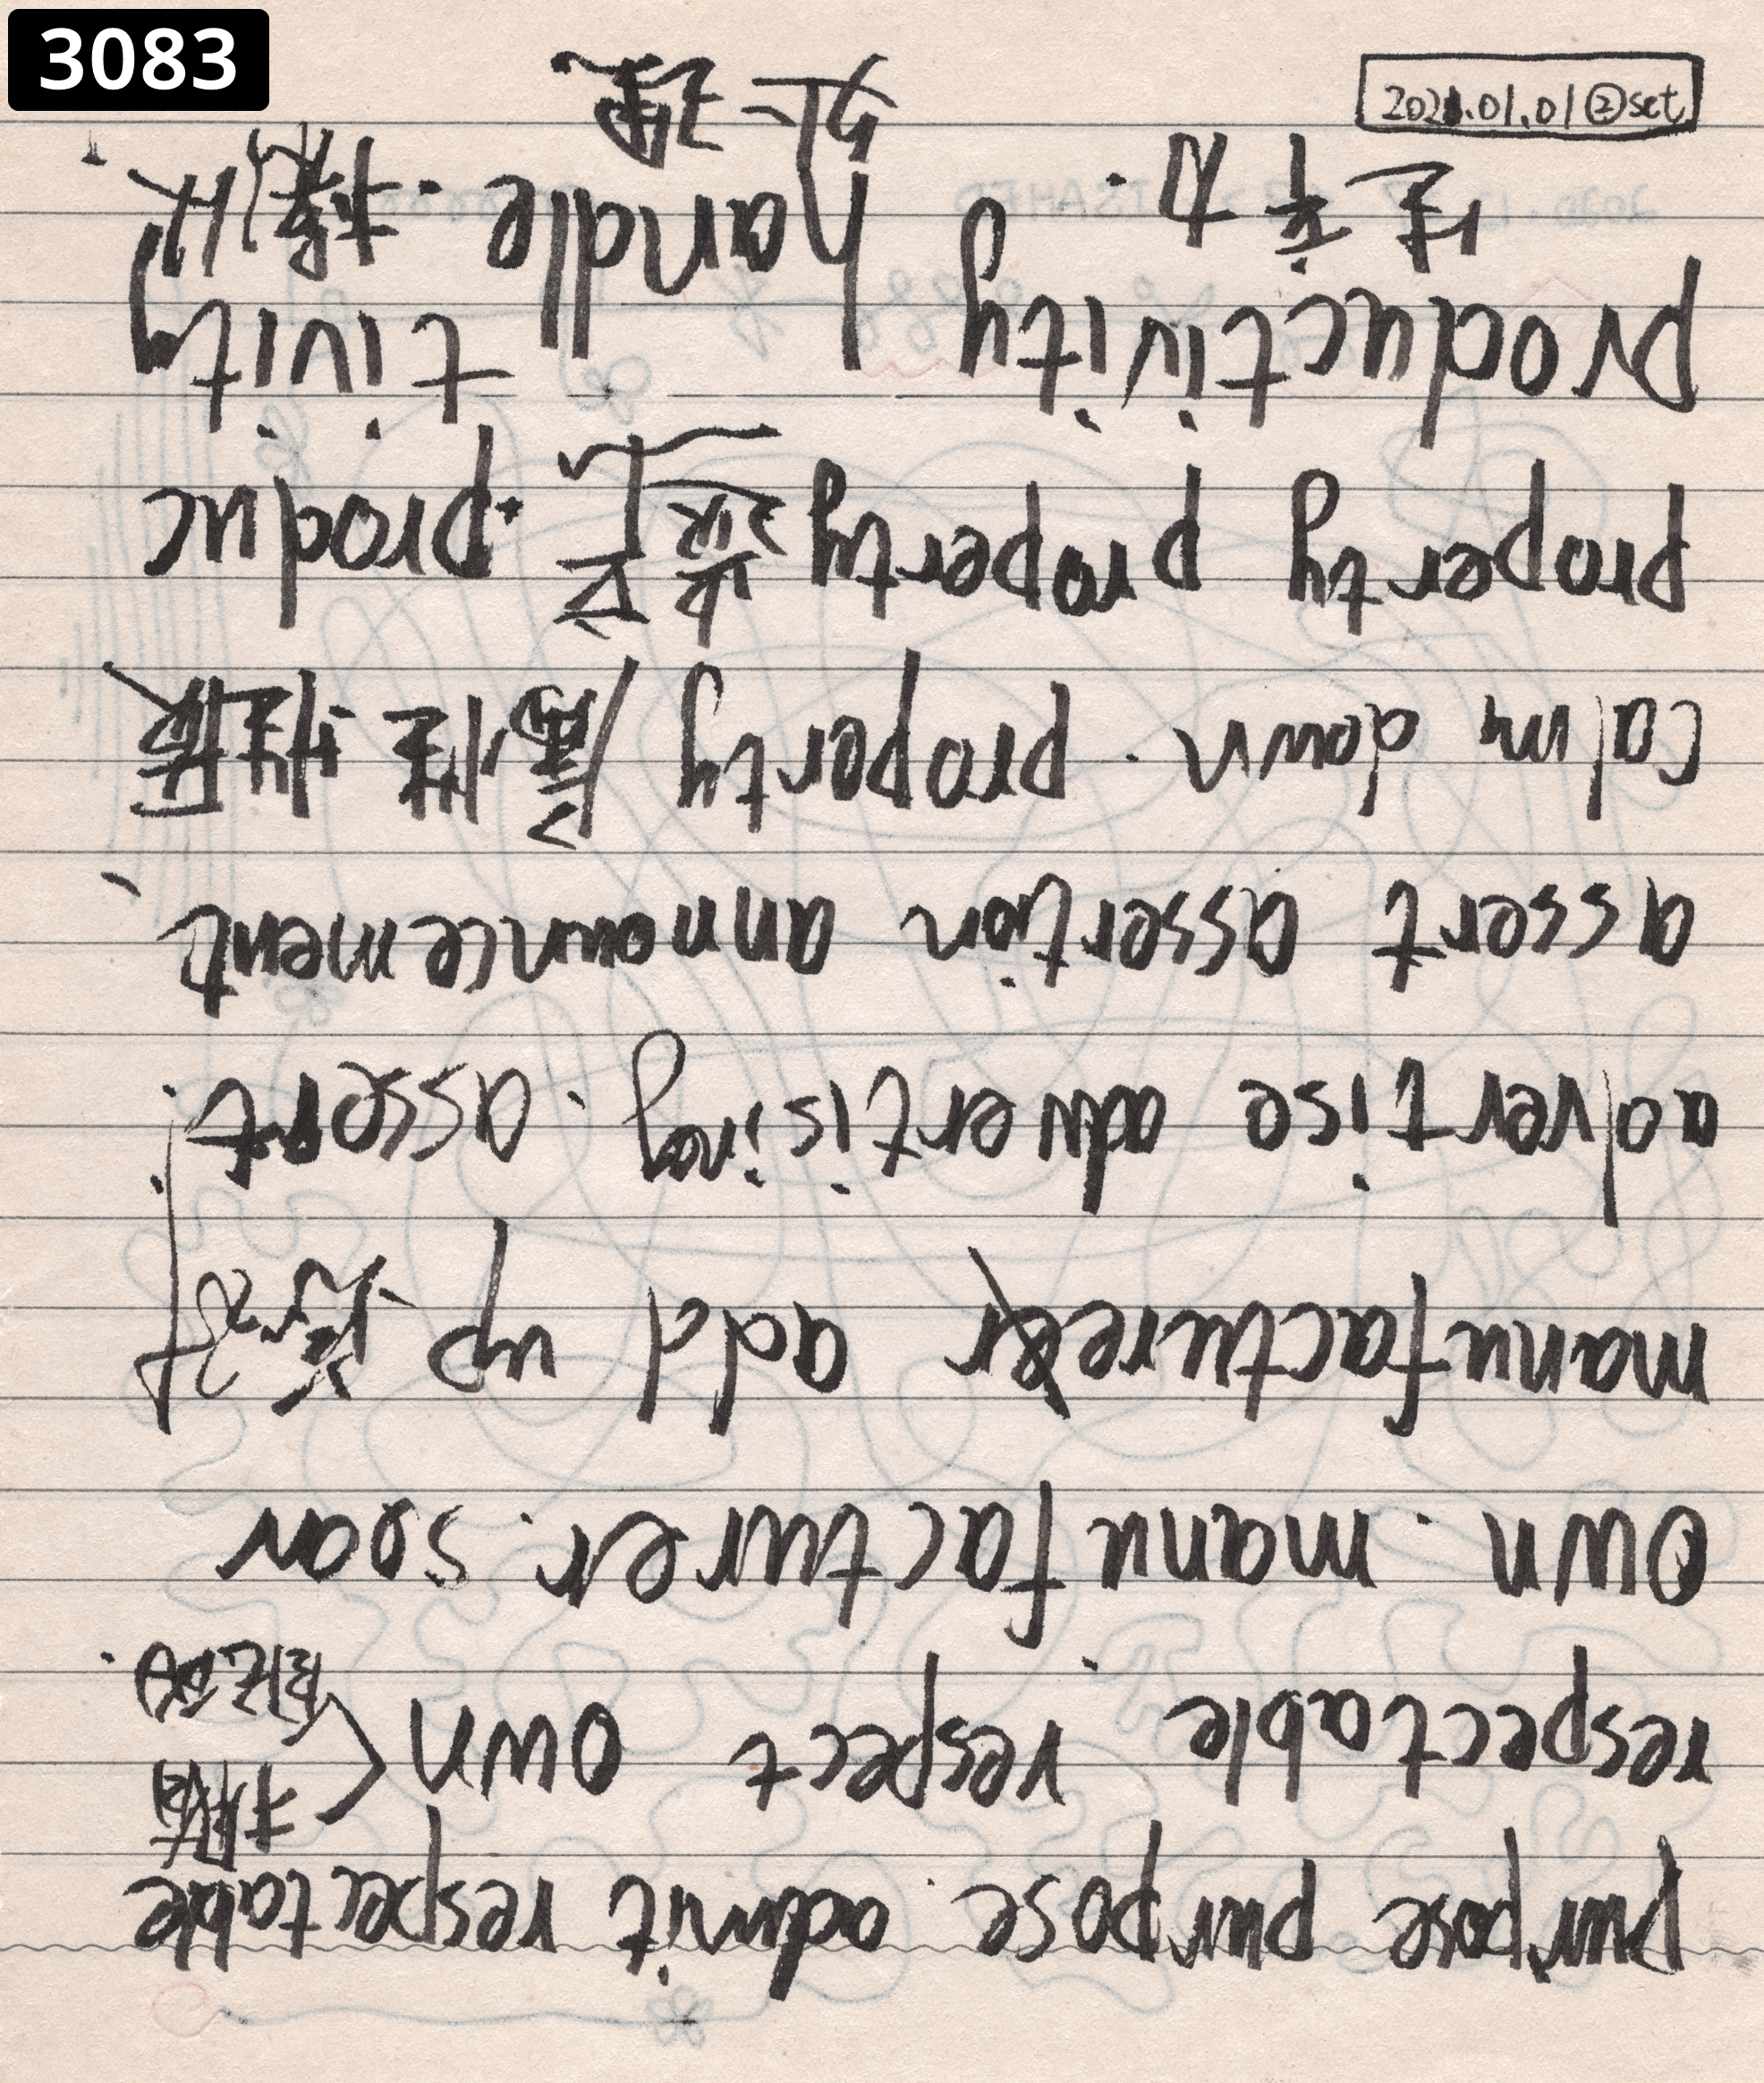 3083
2021.01.01②set
purpose purpose. admit respectable
respectable. respect own
own. manufacturer. soon
manufacturer add up
advertise advertising. assert.
assert assertion announcement
calm down. property
property property .produc
tivity
productivity handle.
生产力.